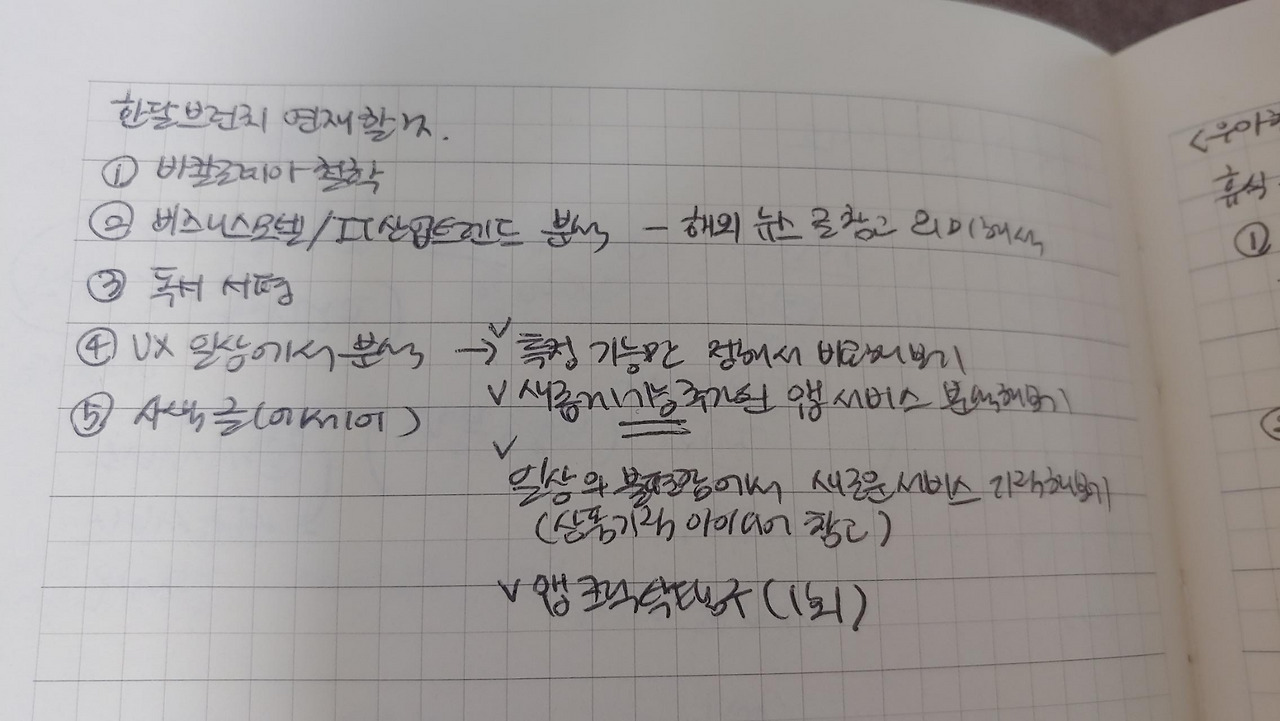 한달브런치 연재할것.
① 바칼로레아 철학
② 비즈니스모델/IT산업트렌드 분석 - 해외 뉴스 글 참고 의미해석
③ 독서 서평
④ UX 일상에서 분석 → ✓ 특정 기능만 정해서 비교해보기
✓ 새롭게 기능추가된 앱 서비스 분석해보기
⑤ 사색 글(에세이)
✓ 일상의 불편함에서 새로운 서비스 기획해보기
(상품기획 아이디어 참고)
✓ 앱 코락펼구 (1회)
<우아
휴식
①